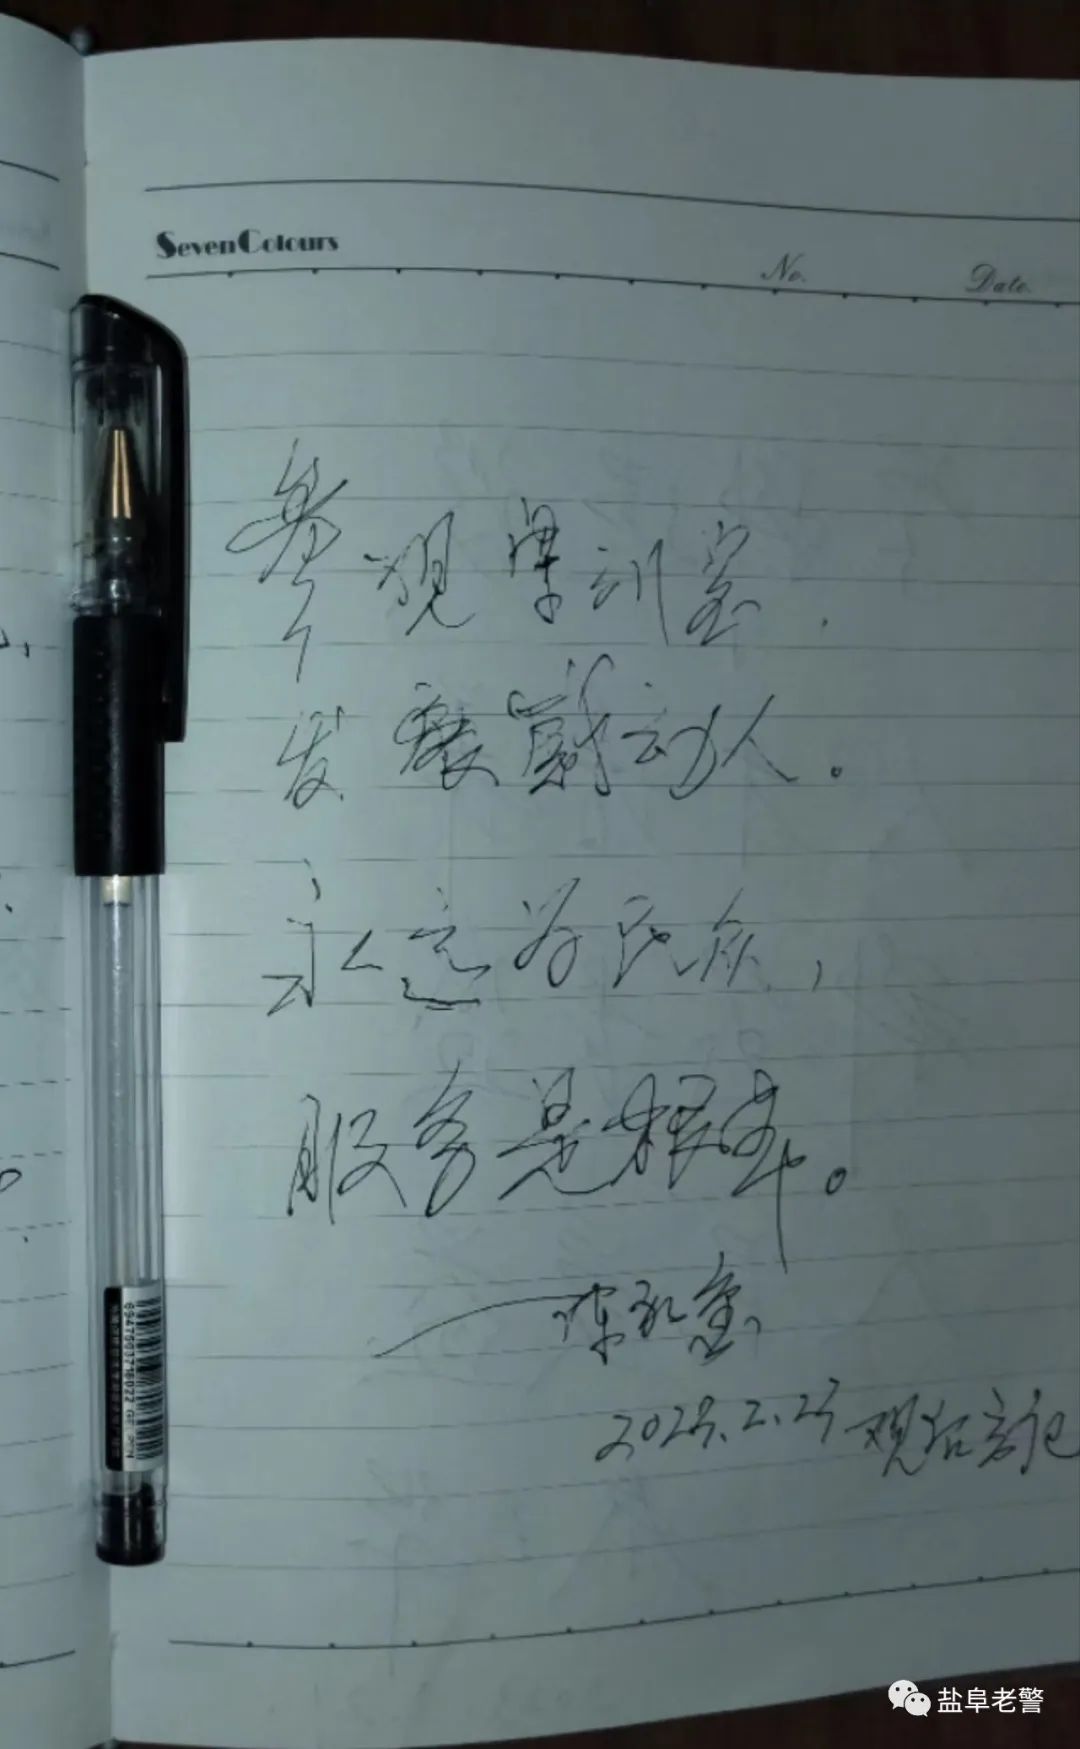 SevenColours
No.
Date.
参观集训室,
发展感动人。
永远为民众,
服务是根本。
2023.2.23 观后言记
6947503716022 GEL PEN
盐阜老警